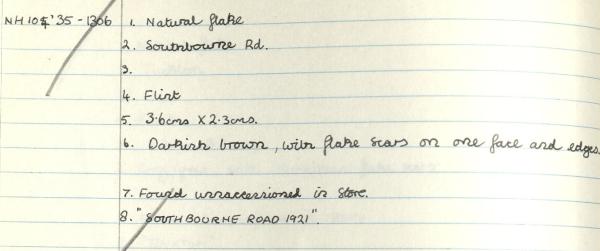 NH105'35-1306 1. Natural flake
2. Southbourne Rd.
3.
4. Flint
5. 3.6cms X 2.3cms.
6. Darkish brown, with flake scars on one face and edges.
7. Found unaccessioned in Store.
8. "SOUTHBOURNE ROAD 1921".